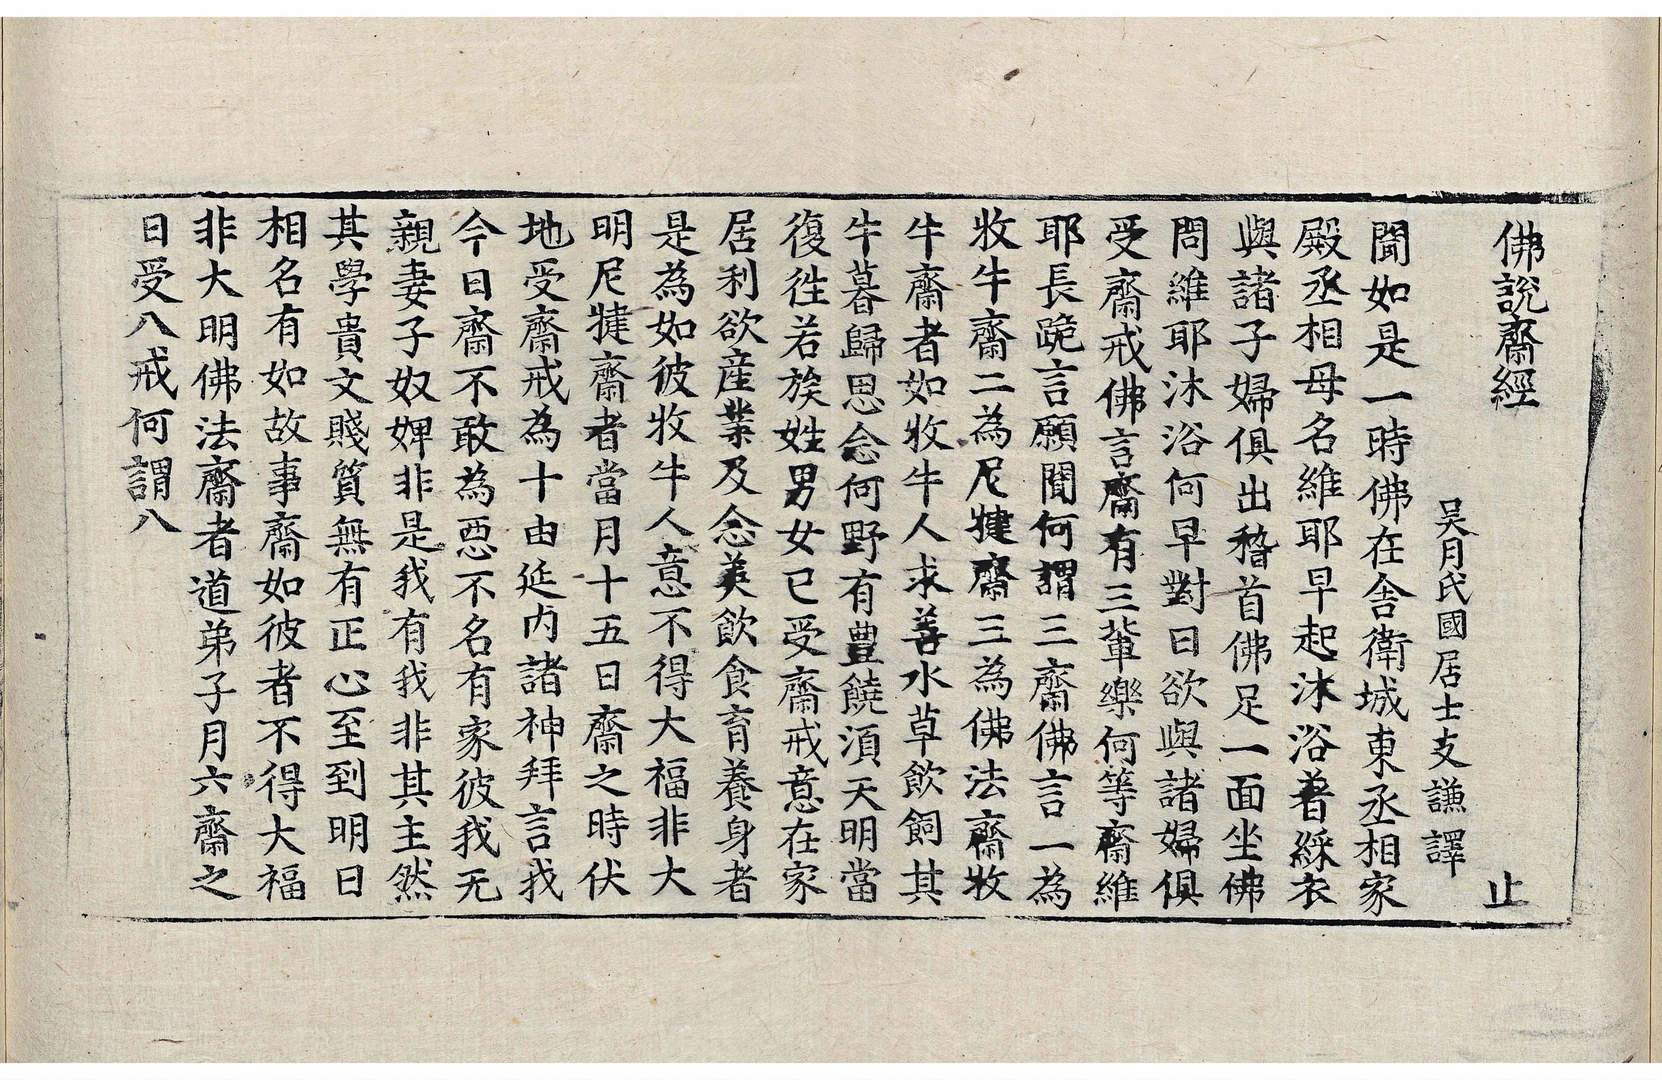 佛說齋經 止
吳月氏國居士支謙譯
聞如是一時佛在舍衛城東丞相家
殿丞相母名維耶早起沐浴著綵衣
與諸子婦俱出稽首佛足一面坐佛
問維耶沐浴何早對曰欲與諸婦俱
受齋戒佛言齋有三輩樂何等齋維
耶長跪言願聞何謂三齋佛言一為
牧牛齋二為尼犍齋三為佛法齋牧
牛齋者如牧牛人求善水草飲飼其
牛暮歸思念何野有豊饒湏天明當
復徃若族姓男女已受齋戒意在家
居利欲産業及念羙飲食育養身者
是為如彼牧牛人意不得大福非大
明尼犍齋者當月十五日齋之時伏
地受齋戒為十由延內諸神拜言我
今日齋不敢為惡不名有家彼我无
親妻子奴婢非是我有我非其主然
其學貴文賤質無有正心至到明日
相名有如故事齋如彼者不得大福
非大明佛法齋者道弟子月六齋之
日受八戒何謂八